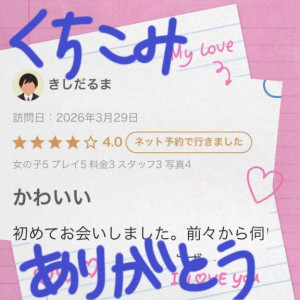 くちこみ
My Love
きしだるま
訪問日：2026年3月29日
4.0 ネット予約で行きました
女の子5 プレイ5 料金3 スタッフ3 写真4
かわいい
初めてお会いしました。前々から伺
ありがとう
I LOVE YOU